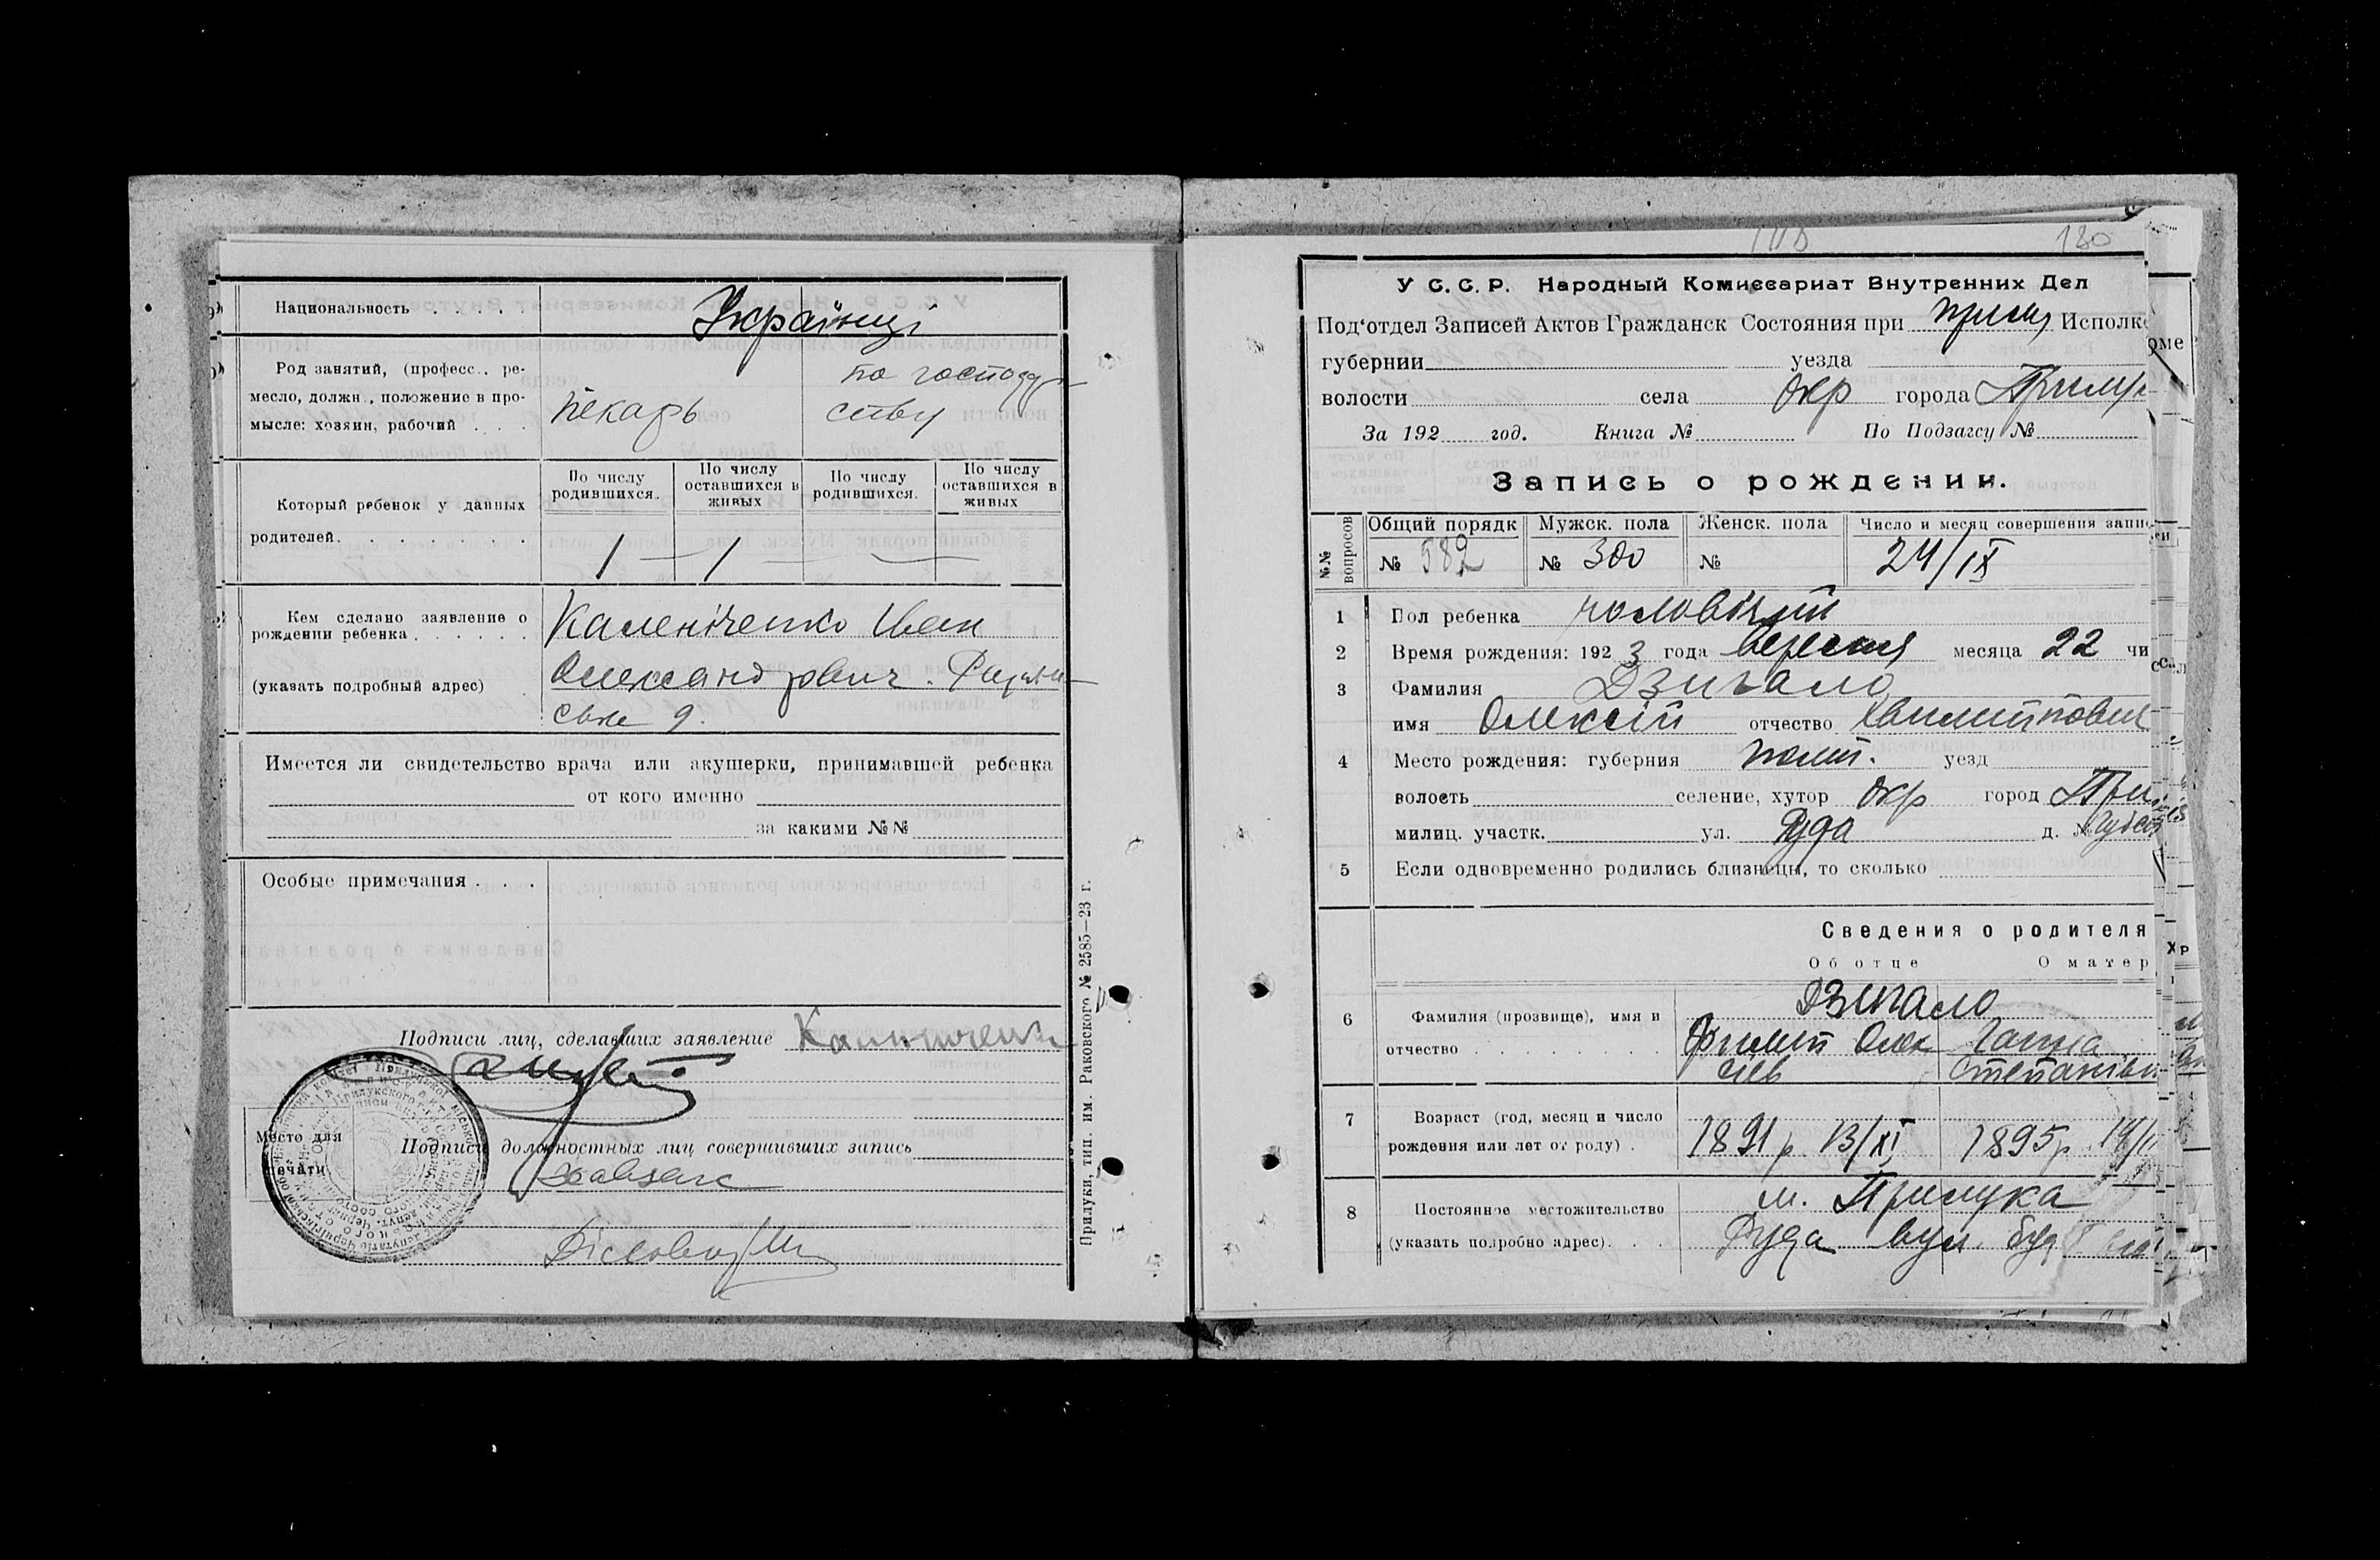 Национальность . . . . Українці
Род занятий, (професс., ре-
месло, должн., положение в про-
мысле: хозяин, рабочий . . .
пекарь
по господар
ству
Который ребенок у данных
родителей. . . . . . . .
По числу родившихся. По числу оставшихся в живых По числу родившихся. По числу оставшихся в живых
1 — 1 — —
Кем сделано заявление о
рождении ребенка . . . . . .
(указать подробный адрес) .
Каленіченко Иван
Олександрович.
9.
Имеется ли свидетельство врача или акушерки, принимавшей ребенка
от кого именно
за какими №№
Особые примечания . . .
Подписи лиц, сделавших заявление
Место для
печати
Подписи должностных лиц совершивших запись
Прилуки, тип. им. Раковского № 2585—23 г.
180
У С. С. Р. Народный Комиссариат Внутренних Дел
Под‘отдел Записей Актов Гражданск Состояния при Прилу Исполк
губернии уезда
волости села Окр города Прилук
За 192 год. Книга № По Подзагсу №
Запись о рождении.
№№ вопросов Общий порядк Мужск. пола Женск. пола Число и месяц совершения запи
№ 582 № 300 № 24/IX
1 Пол ребенка чоловічий
2 Время рождения: 1923 года вересня месяца 22 чи
3 Фамилия Дзигало
имя Олексій отчество
4 Место рождения: губерния Полт. уезд
волость селение, хутор Окр город При
милиц. участк. ул. Руда д. №
5 Если одновременно родились близнецы, то сколько
Сведения о родителя
Об отце О матер
6 Фамилия (прозвище), имя и
отчество . . . . . . . . .
Дзигало
Филип Олек Ганна
сіев Степанівн
7 Возраст (год, месяц и число
рождения или лет от роду) .
1891 р 13/XI 1895 р. 19/
8 Постоянное местожительство
(указать подробно адрес). . .
м. Прилука
Руда вул. буд